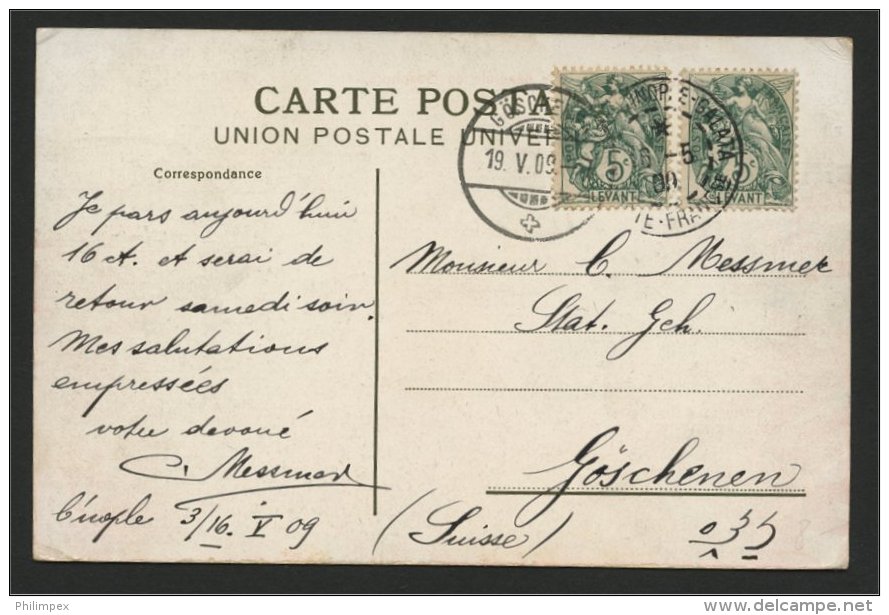 CARTE POSTA
UNION POSTALE UNIVER
GÖSCHE
19. V. 09
5c
LEVANT
NOPLE-GALATA
-5
09
TE-FRAN
LEVANT
Correspondance
Je pars aujourd'hui
16 ct. et serai de
retour samedi soir.
Mes salutations
empressées
votre devoué
C. Messmer
C'nople 3/16. V 09
Monsieur C. Messmer
Stat. Geh.
Göschenen
(Suisse)
Philimpex
delcampe.net